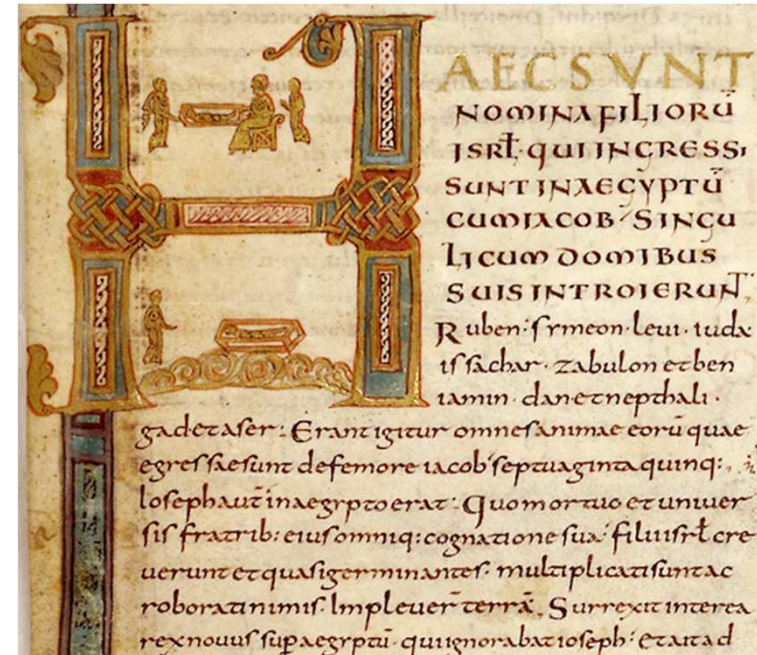 HAEC SVNT
NOMINA FILIORŪ
ISRƚ· QUI INGRESSI
SUNT IN AEGYPTŪ
CUM IACOB· SINGU
LI CUM DOMIBUS
SUIS INTROIERUNT
Ruben· symeon· leui· iuda
issachar· zabulon et ben
iamin· dan et nepthali·
gad et aser· Erant igitur omnes animae eorū quae
egressae sunt de femore iacob septuaginta quinq:
Ioseph aut̄ in aegypto erat· Quo mortuo et uniuer
sis fratrib: eius omniq: cognatione sua· filii isrƚ cre
uerunt et quasi germinantes· multiplicati sunt ac
roborati nimis· Impleuer̄ terrā· Surrexit interea
rex nouus sup̄ aegyptū· qui ignorabat ioseph· et ait ad